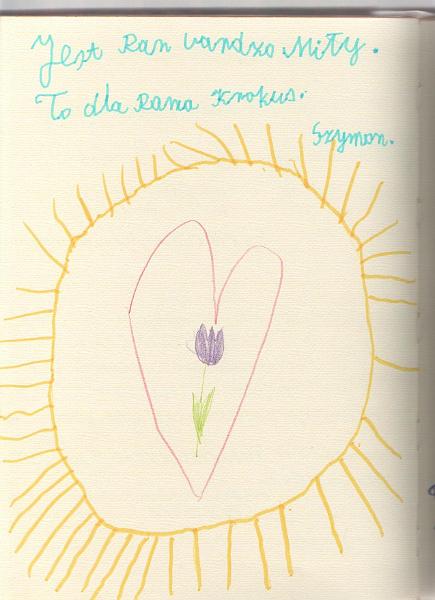 Jest Pan bardzo Miły.
To dla Pana Krokus.
Szymon.